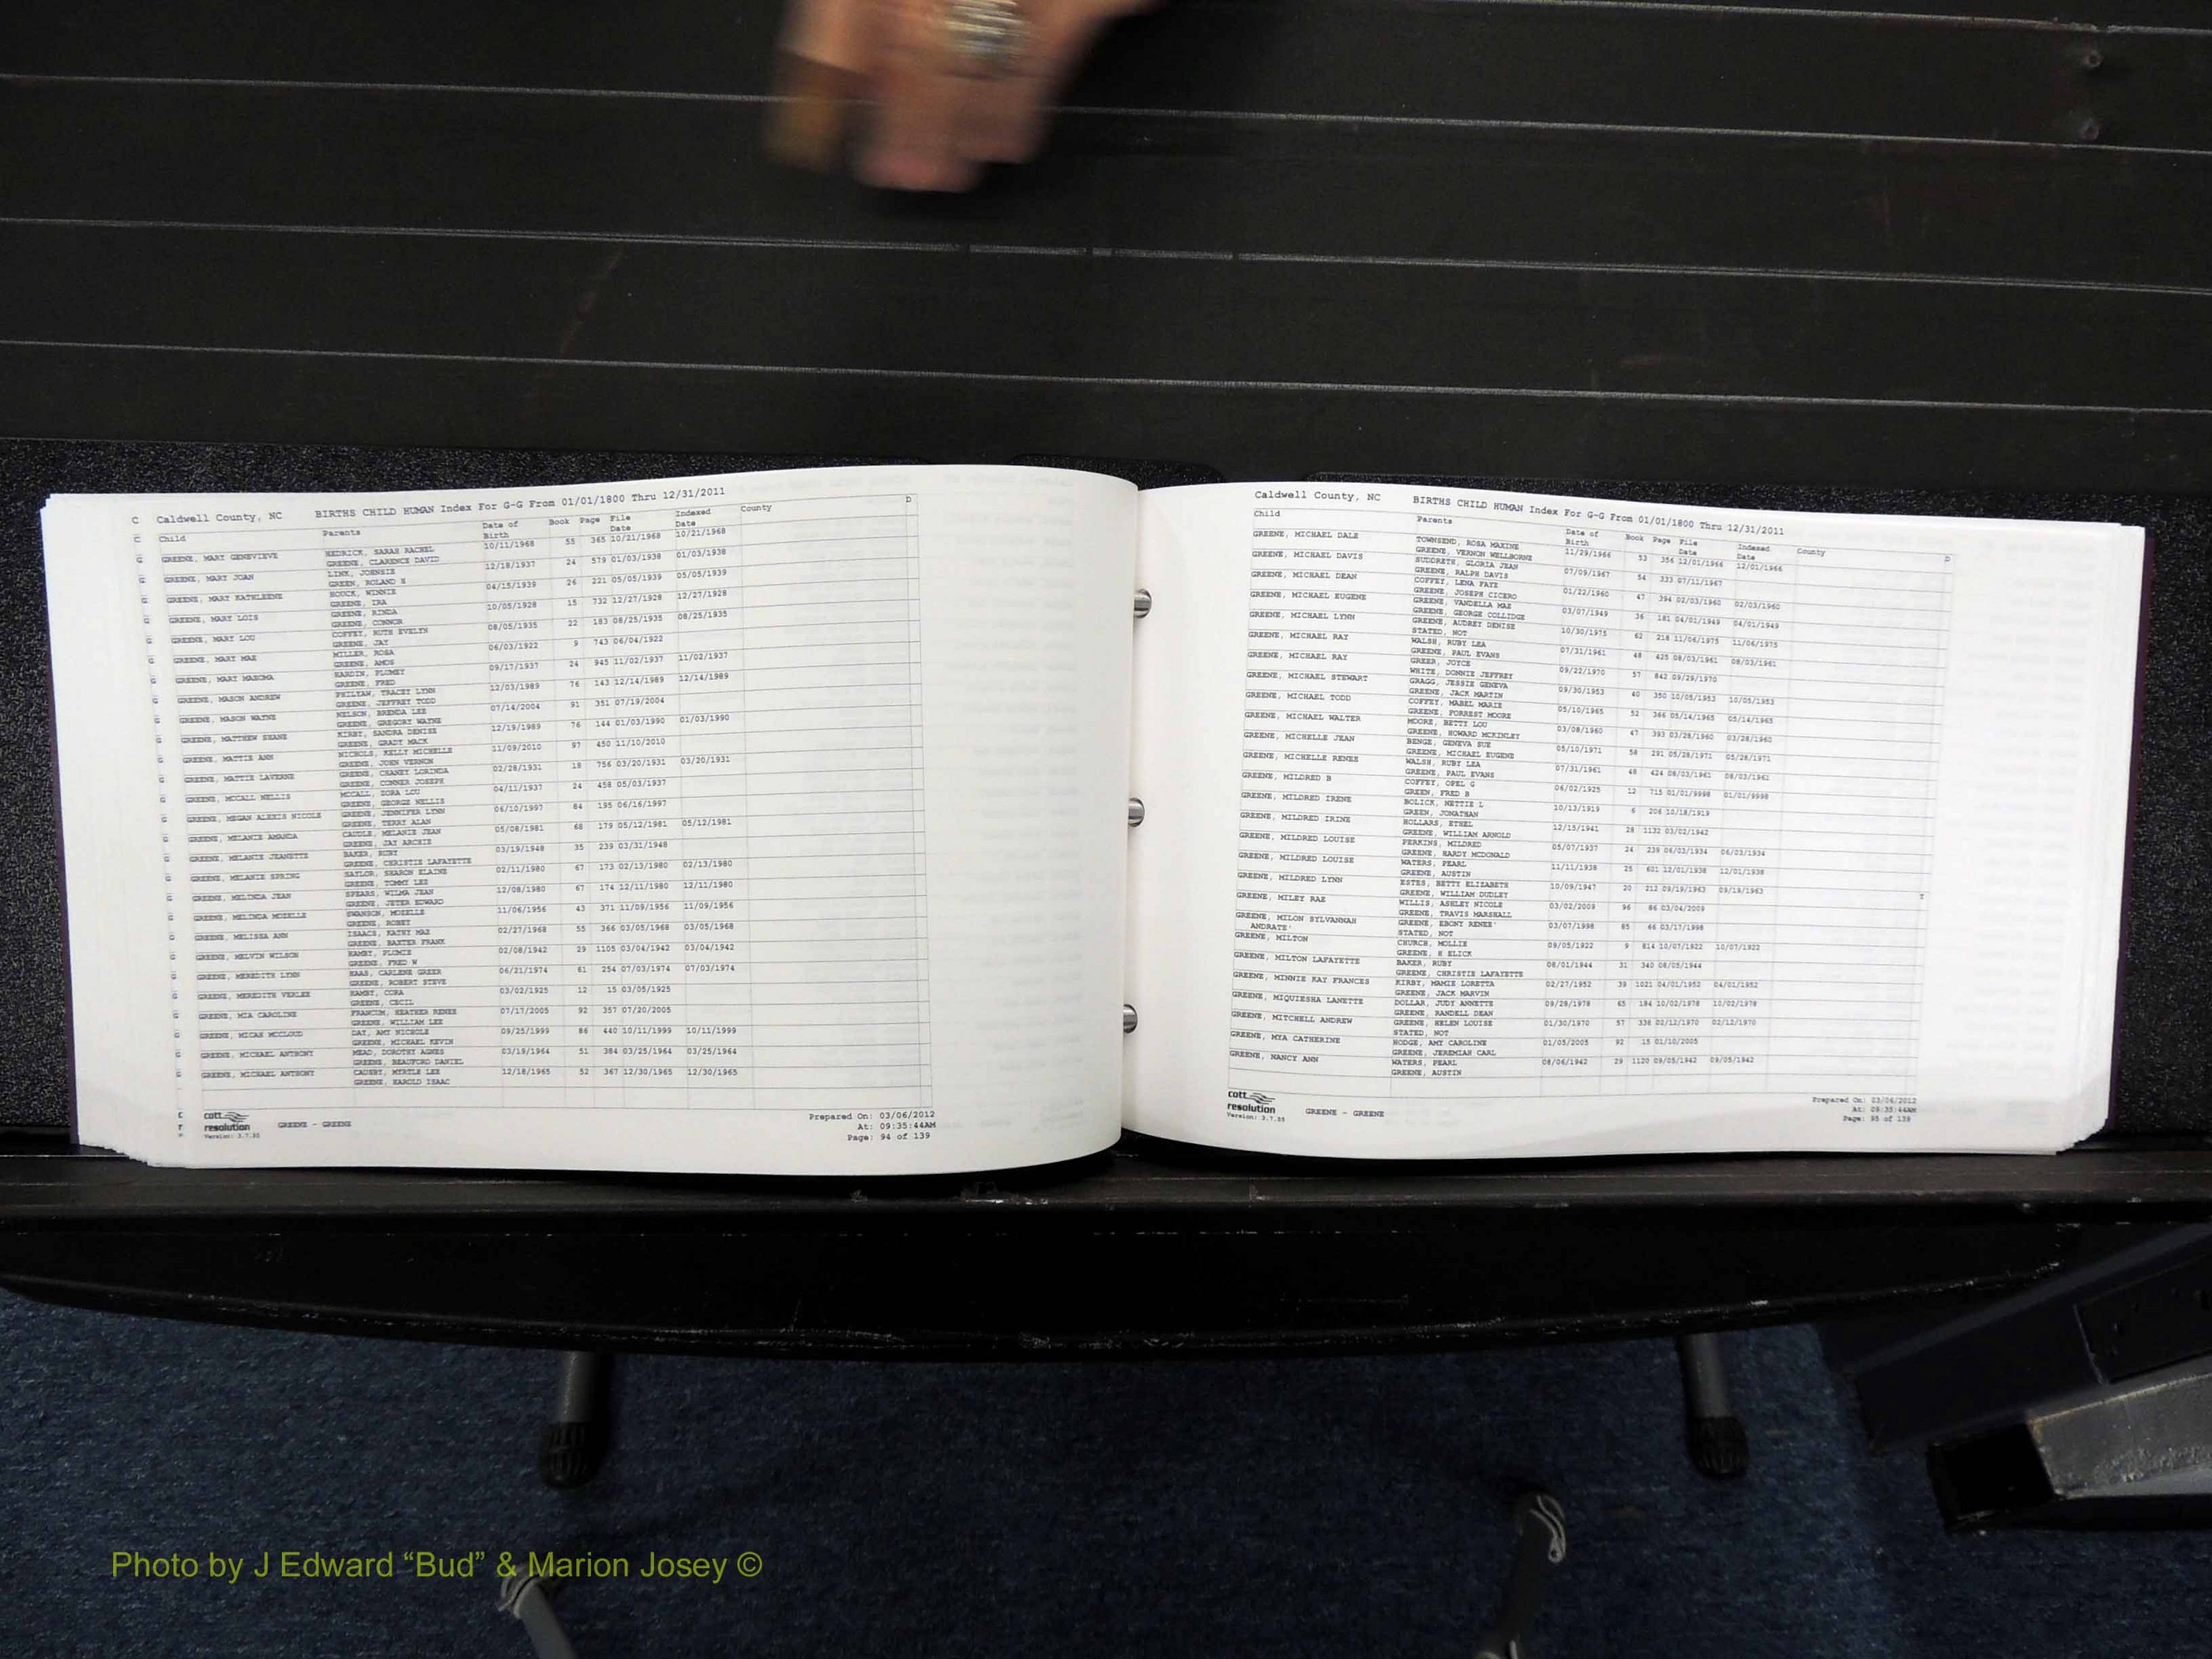 Caldwell County, NC BIRTHS CHILD HUMAN Index For G-G From 01/01/1800 Thru 12/31/2011
Child Parents Date of Birth Book Page File Date Indexed Date County
GREENE, MARY GENEVIEVE HEDRICK, SARAH RACHEL 10/11/1968 55 365 10/21/1968 10/21/1968
GREENE, CLARENCE DAVID
GREENE, MARY JOAN LINK, JOHNSIE 12/18/1937 24 579 01/03/1938 01/03/1938
GREEN, ROLAND H
GREENE, MARY KATHLEENE HOUCK, WINNIE 04/15/1939 26 221 05/05/1939 05/05/1939
GREENE, IRA
GREENE, MARY LOIS GREENE, RINDA 10/05/1928 15 732 12/27/1928 12/27/1928
GREENE, CONNOR
GREENE, MARY LOU COFFEY, RUTH EVELYN 08/05/1935 22 183 08/25/1935 08/25/1935
GREENE, JAY
GREENE, MARY MAE MILLER, ROSA 06/03/1922 9 743 06/04/1922
GREENE, AMOS
GREENE, MARY MASOMA HARDIN, PLUMEY 09/17/1937 24 945 11/02/1937 11/02/1937
GREENE, FRED
GREENE, MASON ANDREW PHILYAW, TRACEY LYNN 12/03/1989 76 143 12/14/1989 12/14/1989
GREENE, JEFFREY TODD
GREENE, MASON WAYNE NELSON, BRENDA LEE 07/14/2004 91 351 07/19/2004
GREENE, GREGORY WAYNE
GREENE, MATTHEW SHANE KIRBY, SANDRA DENISE 12/19/1989 76 144 01/03/1990 01/03/1990
GREENE, GRADY MACK
GREENE, MATTIE ANN NICHOLS, KELLY MICHELLE 11/09/2010 97 450 11/10/2010
GREENE, JOHN VERNON
GREENE, MATTIE LAVERNE GREENE, CHANEY LORINDA 02/28/1931 18 756 03/20/1931 03/20/1931
GREENE, CONNER JOSEPH
GREENE, MCCALL NELLIS MCCALL, ZORA LOU 04/11/1937 24 458 05/03/1937
GREENE, GEORGE NELLIS
GREENE, MEGAN ALEXIS NICOLE GREENE, JENNIFER LYNN 06/10/1997 84 195 06/16/1997
GREENE, TERRY ALAN
GREENE, MELANIE AMANDA CAUDLE, MELANIE JEAN 05/08/1981 68 179 05/12/1981 05/12/1981
GREENE, JAY ARCHIE
GREENE, MELANIE JEANETTE BAKER, RUBY 03/19/1948 35 239 03/31/1948
GREENE, CHRISTIE LAFAYETTE
GREENE, MELANIE SPRING SAYLOR, SHARON ELAINE 02/11/1980 67 173 02/13/1980 02/13/1980
GREENE, TOMMY LEE
GREENE, MELINDA JEAN SPEARS, WILMA JEAN 12/08/1980 67 174 12/11/1980 12/11/1980
GREENE, JETER EDWARD
GREENE, MELINDA MOZELLE SWANSON, MOZELLE 11/06/1956 43 371 11/09/1956 11/09/1956
GREENE, ROBEY
GREENE, MELISSA ANN ISAACS, KATHY MAE 02/27/1968 55 366 03/05/1968 03/05/1968
GREENE, BAXTER FRANK
GREENE, MELVIN WILSON HAMBY, PLUMIE 02/08/1942 29 1105 03/04/1942 03/04/1942
GREENE, FRED W
GREENE, MEREDITH LYNN HAAS, CARLENE GREER 06/21/1974 61 254 07/03/1974 07/03/1974
GREENE, ROBERT STEVE
GREENE, MEREDITH VERLEE HAMBY, CORA 03/02/1925 12 15 03/05/1925
GREENE, CECIL
GREENE, MIA CAROLINE FRANCUM, HEATHER RENEE 07/17/2005 92 357 07/20/2005
GREENE, WILLIAM LEE
GREENE, MICAH MCCLOUD DAY, AMY NICHOLE 09/25/1999 86 440 10/11/1999 10/11/1999
GREENE, MICHAEL KEVIN
GREENE, MICHAEL ANTHONY MEAD, DOROTHY AGNES 03/19/1964 51 384 03/25/1964 03/25/1964
GREENE, BEAUFORD DANIEL
GREENE, MICHAEL ANTHONY CAUSBY, MYRTLE LEE 12/18/1965 52 367 12/30/1965 12/30/1965
GREENE, HAROLD ISAAC
cott resolution GREENE - GREENE Prepared On: 03/06/2012
Version: 3.7.35 At: 09:35:44AM
Page: 94 of 139
Caldwell County, NC BIRTHS CHILD HUMAN Index For G-G From 01/01/1800 Thru 12/31/2011
Child Parents Date of Birth Book Page File Date Indexed Date County
GREENE, MICHAEL DALE TOWNSEND, ROSA MAXINE 11/29/1966 53 356 12/01/1966 12/01/1966
GREENE, VERNON WELLBORNE
GREENE, MICHAEL DAVIS SUDDRETH, GLORIA JEAN 07/09/1967 54 333 07/11/1967
GREENE, RALPH DAVIS
GREENE, MICHAEL DEAN COFFEY, LENA FAYE 01/22/1960 47 394 02/03/1960 02/03/1960
GREENE, JOSEPH CICERO
GREENE, MICHAEL EUGENE GREENE, VANDELLA MAE 03/07/1949 36 181 04/01/1949 04/01/1949
GREENE, GEORGE COLLIDGE
GREENE, MICHAEL LYNN GREENE, AUDREY DENISE 10/30/1975 62 218 11/06/1975 11/06/1975
STATED, NOT
GREENE, MICHAEL RAY WALSH, RUBY LEA 07/31/1961 48 425 08/03/1961 08/03/1961
GREENE, PAUL EVANS
GREENE, MICHAEL RAY GREER, JOYCE 09/22/1970 57 842 09/29/1970
WHITE, DONNIE JEFFREY
GREENE, MICHAEL STEWART GRAGG, JESSIE GENEVA 09/30/1953 40 350 10/05/1953 10/05/1953
GREENE, JACK MARTIN
GREENE, MICHAEL TODD COFFEY, MABEL MARIE 05/10/1965 52 366 05/14/1965 05/14/1965
GREENE, FORREST MOORE
GREENE, MICHAEL WALTER MOORE, BETTY LOU 03/08/1960 47 393 03/28/1960 03/28/1960
GREENE, HOWARD MCKINLEY
GREENE, MICHELLE JEAN BENGE, GENEVA SUE 05/10/1971 58 291 05/28/1971 05/28/1971
GREENE, MICHAEL EUGENE
GREENE, MICHELLE RENEE WALSH, RUBY LEA 07/31/1961 48 424 08/03/1961 08/03/1961
GREENE, PAUL EVANS
GREENE, MILDRED B COFFEY, OPEL G 06/02/1925 12 715 01/01/9998 01/01/9998
GREEN, FRED B
GREENE, MILDRED IRENE BOLICK, NETTIE L 10/13/1919 6 206 10/18/1919
GREEN, JONATHAN
GREENE, MILDRED IRINE HOLLARS, ETHEL 12/15/1941 28 1132 03/02/1942
GREENE, WILLIAM ARNOLD
GREENE, MILDRED LOUISE PERKINS, MILDRED 05/07/1937 24 239 06/03/1934 06/03/1934
GREENE, HARDY MCDONALD
GREENE, MILDRED LOUISE WATERS, PEARL 11/11/1938 25 601 12/01/1938 12/01/1938
GREENE, AUSTIN
GREENE, MILDRED LYNN ESTES, BETTY ELIZABETH 10/09/1947 20 212 09/19/1963 09/19/1963
GREENE, WILLIAM DUDLEY
GREENE, MILEY RAE WILLIS, ASHLEY NICOLE 03/02/2009 96 86 03/04/2009
GREENE, TRAVIS MARSHALL
GREENE, MILON SYLVANNAH GREENE, EBONY RENEE' 03/07/1998 85 66 03/17/1998
ANDRATE' STATED, NOT
GREENE, MILTON CHURCH, MOLLIE 09/05/1922 9 814 10/07/1922 10/07/1922
GREENE, H ELICK
GREENE, MILTON LAFAYETTE BAKER, RUBY 08/01/1944 31 340 08/05/1944
GREENE, CHRISTIE LAFAYETTE
GREENE, MINNIE KAY FRANCES KIRBY, MAMIE LORETTA 02/27/1952 39 1021 04/01/1952 04/01/1952
GREENE, JACK MARVIN
GREENE, MIQUIESHA LANETTE DOLLAR, JUDY ANNETTE 09/28/1978 65 184 10/02/1978 10/02/1978
GREENE, RANDELL DEAN
GREENE, MITCHELL ANDREW GREENE, HELEN LOUISE 01/30/1970 57 338 02/12/1970 02/12/1970
STATED, NOT
GREENE, MYA CATHERINE HODGE, AMY CAROLINE 01/05/2005 92 15 01/10/2005
GREENE, JEREMIAH CARL
GREENE, NANCY ANN WATERS, PEARL 08/06/1942 29 1120 09/05/1942 09/05/1942
GREENE, AUSTIN
cott resolution GREENE - GREENE Prepared On: 03/06/2012
Version: 3.7.35 At: 09:35:44AM
Page: 95 of 139
Photo by J Edward “Bud” & Marion Josey ©